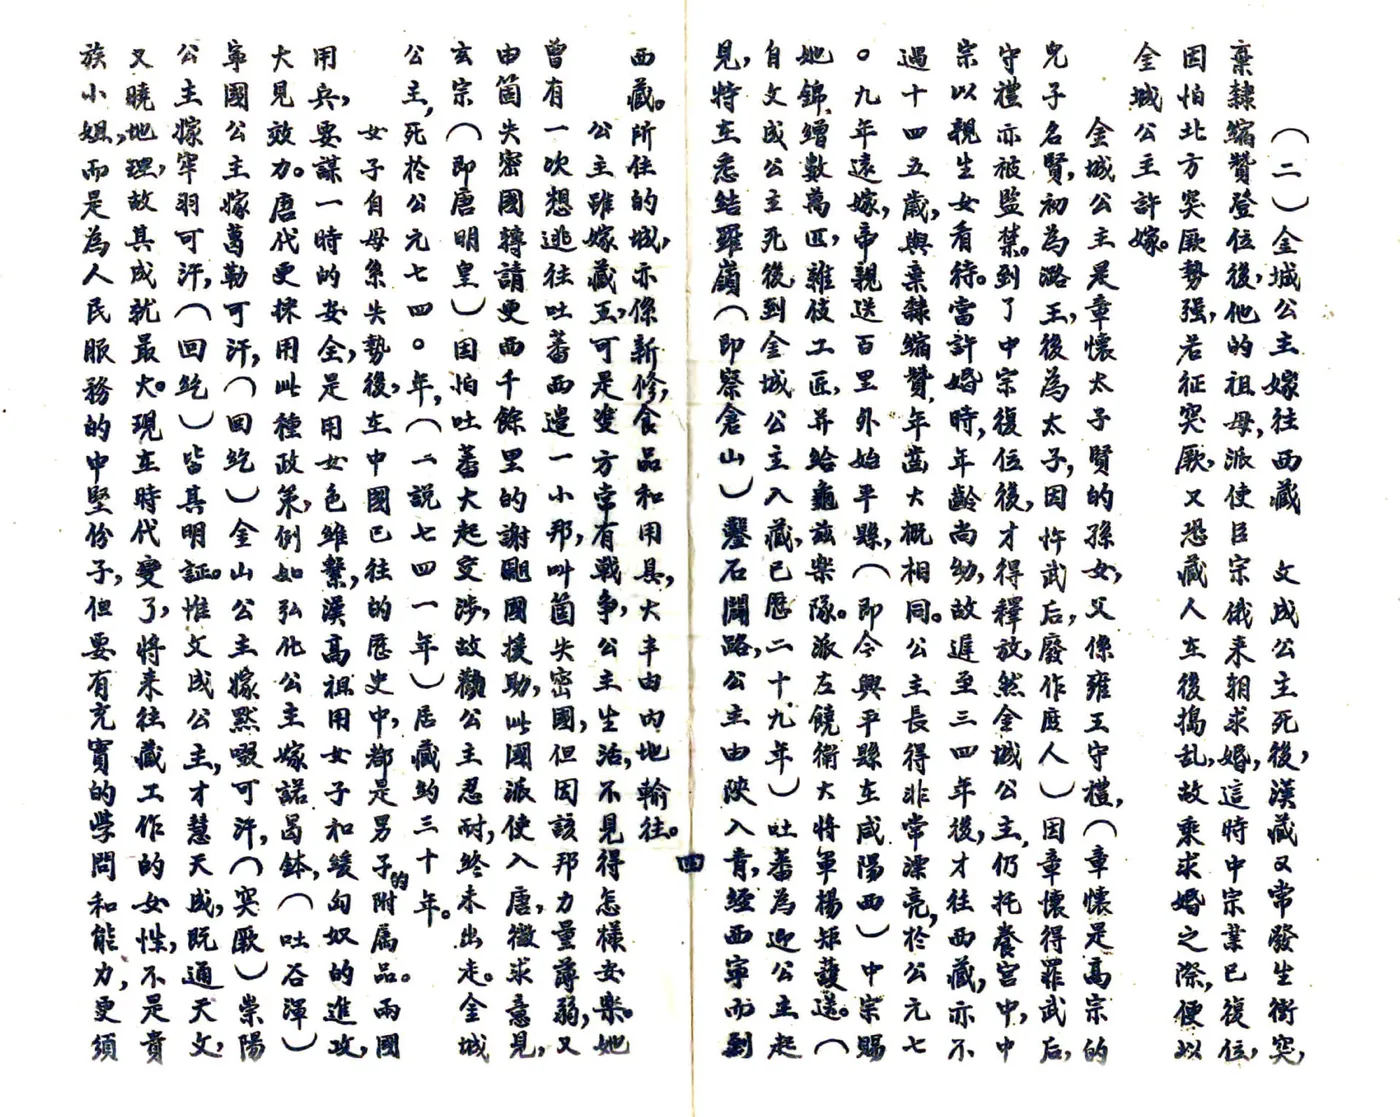 （二）金城公主嫁往西藏　文成公主死後，漢藏又常發生衝突，
棄隸縮贊登位後，他的祖母，派使臣宗俄来朝求婚，這時中宗業已復位，
因怕北方突厥勢强，若征突厥，又恐藏人在後搗乱，故乘求婚之際，便以
金城公主許嫁。
金城公主是章懷太子賢的孫女，父係雍王守禮，（章懷是高宗的
兒子名賢，初為潞王，後為太子，因忤武后，廢作庶人）因章懷得罪武后，
守禮亦被監禁。到了中宗復位後，才得釋放，然金城公主，仍托養宫中，中
宗以親生女看待。當許婚時，年齡尚幼，故遲至三四年後，才往西藏，亦不
過十四五歲，與棄隸縮贊，年齒大概相同。公主長得非常漂亮，於公元七
〇九年遠嫁，帝親送百里外始平縣，（即今興平縣在咸陽西）中宗賜
她錦繒數萬匹，雜伎工匠，并给龜兹樂隊。派左饒衛大將軍楊矩護送。（
自文成公主死後到金城公主入藏，已歷二十九年）吐蕃為迎公主起
見，特在悉結羅嶺（即察倉山）鑿石闢路，公主由陝入青，經西寧而到
四
西藏。所住的城，亦係新修，食品和用具，大半由内地輸往。
公主雖嫁藏王，可是雙方常有戰争，公主生活，不見得怎樣安樂。她
曾有一次想逃往吐蕃西邊一小邦，叫箇失密國，但因該邦力量薄弱，又
由箇失密國轉請更西千餘里的謝䫻國援助，此國派使入唐，徵求意見，
玄宗（即唐明皇）因怕吐蕃大起交涉，故勸公主忍耐，終未出走。金城
公主，死於公元七四〇年，（一説七四一年）居藏約三十年。
女子自母系失勢後，在中國已往的歷史中，都是男子的附属品。兩國
用兵，要謀一時的安全，是用女色維繫，漢高祖用女子和緩匈奴的進攻，
大見效力。唐代更採用此種政策，例如弘化公主嫁諾曷鉢，（吐谷渾）
寧國公主嫁葛勒可汗，（回紇）金山公主嫁黙啜可汗，（突厥）崇陽
公主嫁牢羽可汗，（回紇）皆其明証。惟文成公主，才慧天成，既通天文，
又曉地理，故其成就最大。現在時代變了，將来往藏工作的女性，不是貴
族小姐，而是為人民服務的中堅份子，但要有充實的學問和能力，更須